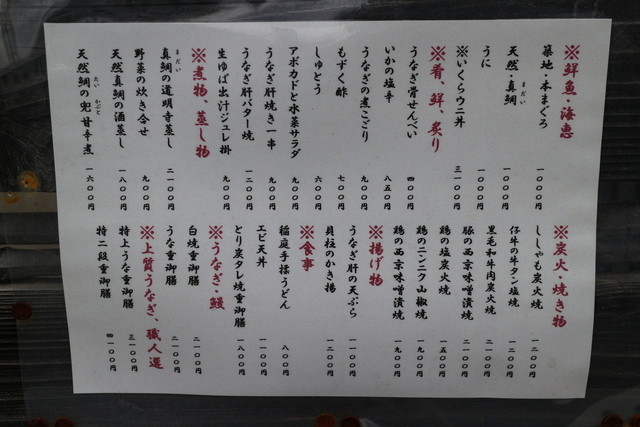 ※鮮魚・海恵
築地・本まぐろ 一〇〇〇円
天然・真鯛 一〇〇〇円
まだい
うに 一〇〇〇円
※いくらウニ丼 三一〇〇円
※肴、鮮、炙り
うなぎ骨せんべい 四〇〇円
いかの塩辛 八五〇円
うなぎの煮こごり 九〇〇円
もずく酢 七〇〇円
しゅとう 六〇〇円
アボカドと水菜サラダ 九〇〇円
うなぎ肝焼き一串 九〇〇円
うなぎ肝バター焼 一二〇〇円
生ゆば出汁ジュレ掛 九〇〇円
※煮物、蒸し物
真鯛の道明寺蒸し 二一〇〇円
まだい
野菜の炊き合せ 九〇〇円
天然真鯛の酒蒸し 一八〇〇円
天然鯛の兜甘辛煮 一六〇〇円
たい かぶと
※炭火・焼き物
ししゃも炭火焼 一二〇〇円
仔牛の牛タン塩焼 一二〇〇円
黒毛和牛肉炭火焼 二一〇〇円
豚の西京味噌漬焼 二一〇〇円
鶏の塩炭火焼 一五〇〇円
鶏のニンニク山椒焼 一九〇〇円
鶏の西京味噌漬焼 一九〇〇円
※揚げ物
うなぎ肝の天ぷら 一二〇〇円
貝柱のかき揚 一一〇〇円
※食事
稲庭手揉うどん 八〇〇円
エビ天丼 一一〇〇円
とり炭タレ焼重御膳 一八〇〇円
※うなぎ・鰻
白焼重御膳 二一〇〇円
うな重御膳 二一〇〇円
※上質うなぎ、職人選
特上うな重御膳 三一〇〇円
特二段重御膳 四一〇〇円